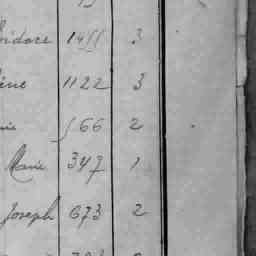 idore 1455 3
ène 1122 3
nie 566 2
Marie 347 1
Joseph 673 2